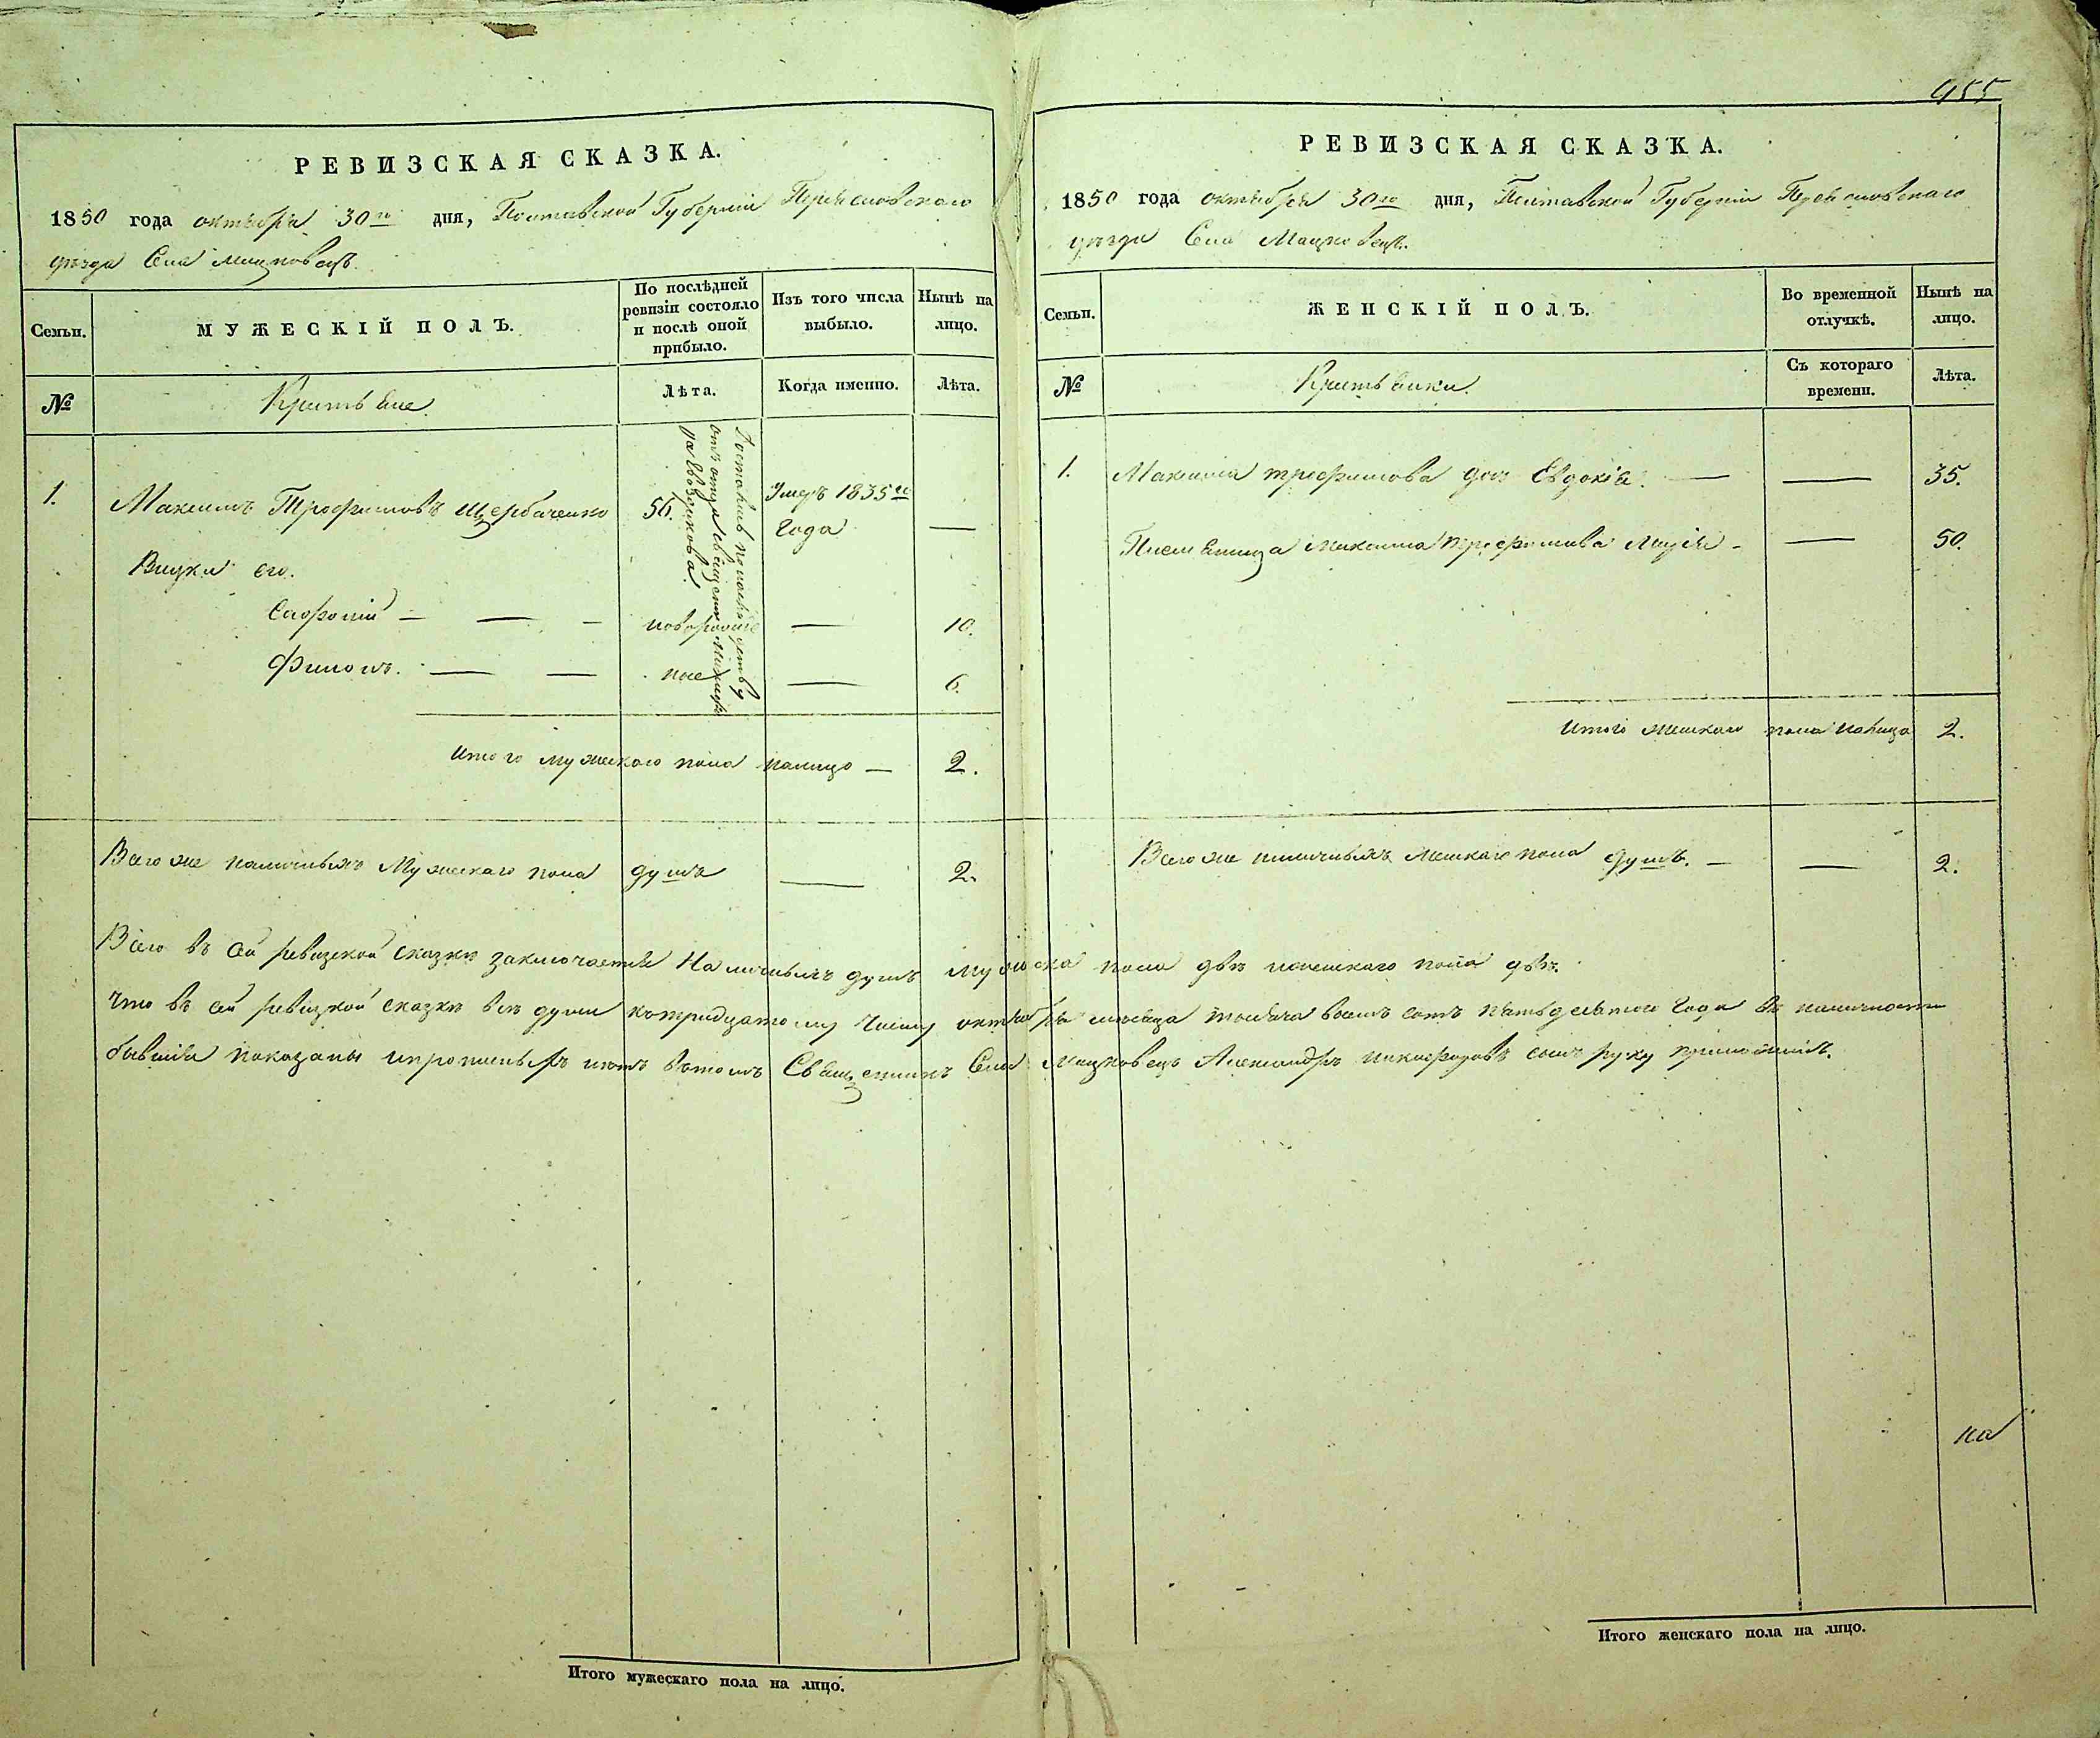 955
РЕВИЗСКАЯ СКАЗКА.
1850 года октября 30го дня, Полтавской Губерніи Переясловского
уѣзда Села Мацковецъ.
Семьи.
МУЖЕСКІЙ ПОЛЪ.
По послѣдней ревизіи состояло и послѣ оной прибыло.
Изъ того числа выбыло.
Нынѣ на лицо.
№
Крестьяне.
Лѣта.
Когда именно.
Лѣта.
Достался по наследству
отъ отца священника
1. Максимъ Трофимовъ Щербаченко 56. Умеръ 1835го Года —
Внуки его.
Сафоній — — — новорожден 10.
Филонъ. — — ные — 6.
Итого мужескаго пола налицо — 2.
Всего же наличныхъ Мужескаго пола душъ — 2.
РЕВИЗСКАЯ СКАЗКА.
1850 года октября 30го дня, Полтавской Губерніи Переясловскаго
уѣзда Села Мацковецъ.
Семьи.
ЖЕНСКІЙ ПОЛЪ.
Во временной отлучкѣ.
Нынѣ на лицо.
№
Крестьянки.
Съ котораго времени.
Лѣта.
1. Максима Трофимова дочь Евдокія. — — 35.
Племяница Максима Трофимова Марія — — 50.
Итого женскаго пола налицо 2.
Всего же наличныхъ женскаго пола душъ. — — 2.
Всего въ сей ревизской сказкѣ заключается наличныхъ душъ мужеска пола двѣ и женскаго пола двѣ.
Что въ сей ревизкой сказкѣ всѣ души къ тридцатому числу октября мѣсяца тысяча восемъ сотъ пятьдесятого Года въ наличности
бывшія показаны и прописныхъ нѣтъ въ томъ Священникъ Села Мацковецъ Александръ Никифоровъ сынъ руку приложилъ.
на
Итого мужескаго пола на лицо.
Итого женскаго пола на лицо.